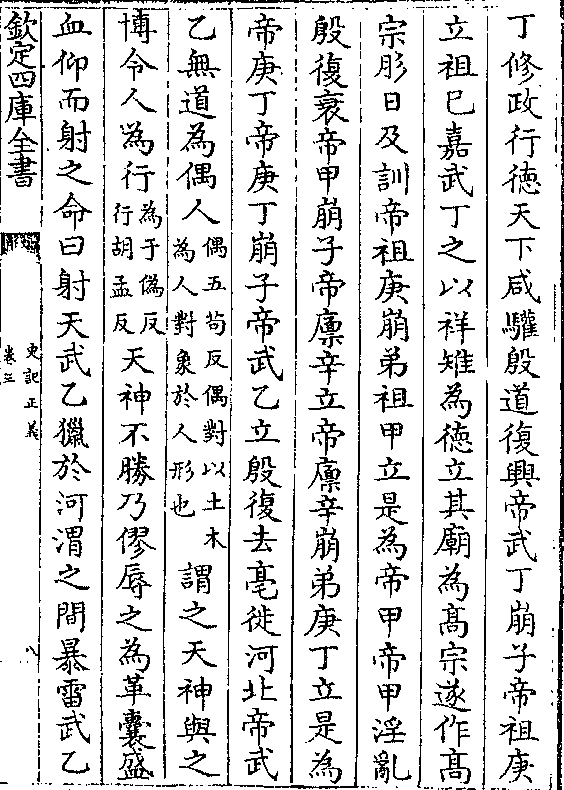 丁修政行徳天下咸驩殷道復興帝武丁崩子帝祖庚
立祖巳嘉武丁之以祥雉為徳立其廟為髙宗遂作髙
宗肜日及訓帝祖庚崩弟祖甲立是為帝甲帝甲淫亂
殷復衰帝甲崩子帝廩辛立帝廩辛崩弟庚丁立是為
帝庚丁帝庚丁崩子帝武乙立殷復去亳徙河北帝武
乙無道為偶人偶五茍反偶對以土木為人對象於人形也謂之天神與之
博令人為行為于偽反行胡孟反天神不勝乃僇辱之為革囊盛
血仰而射之命曰射天武乙獵於河渭之間暴雷武乙
欽定四庫全書
史記正義
卷三
八